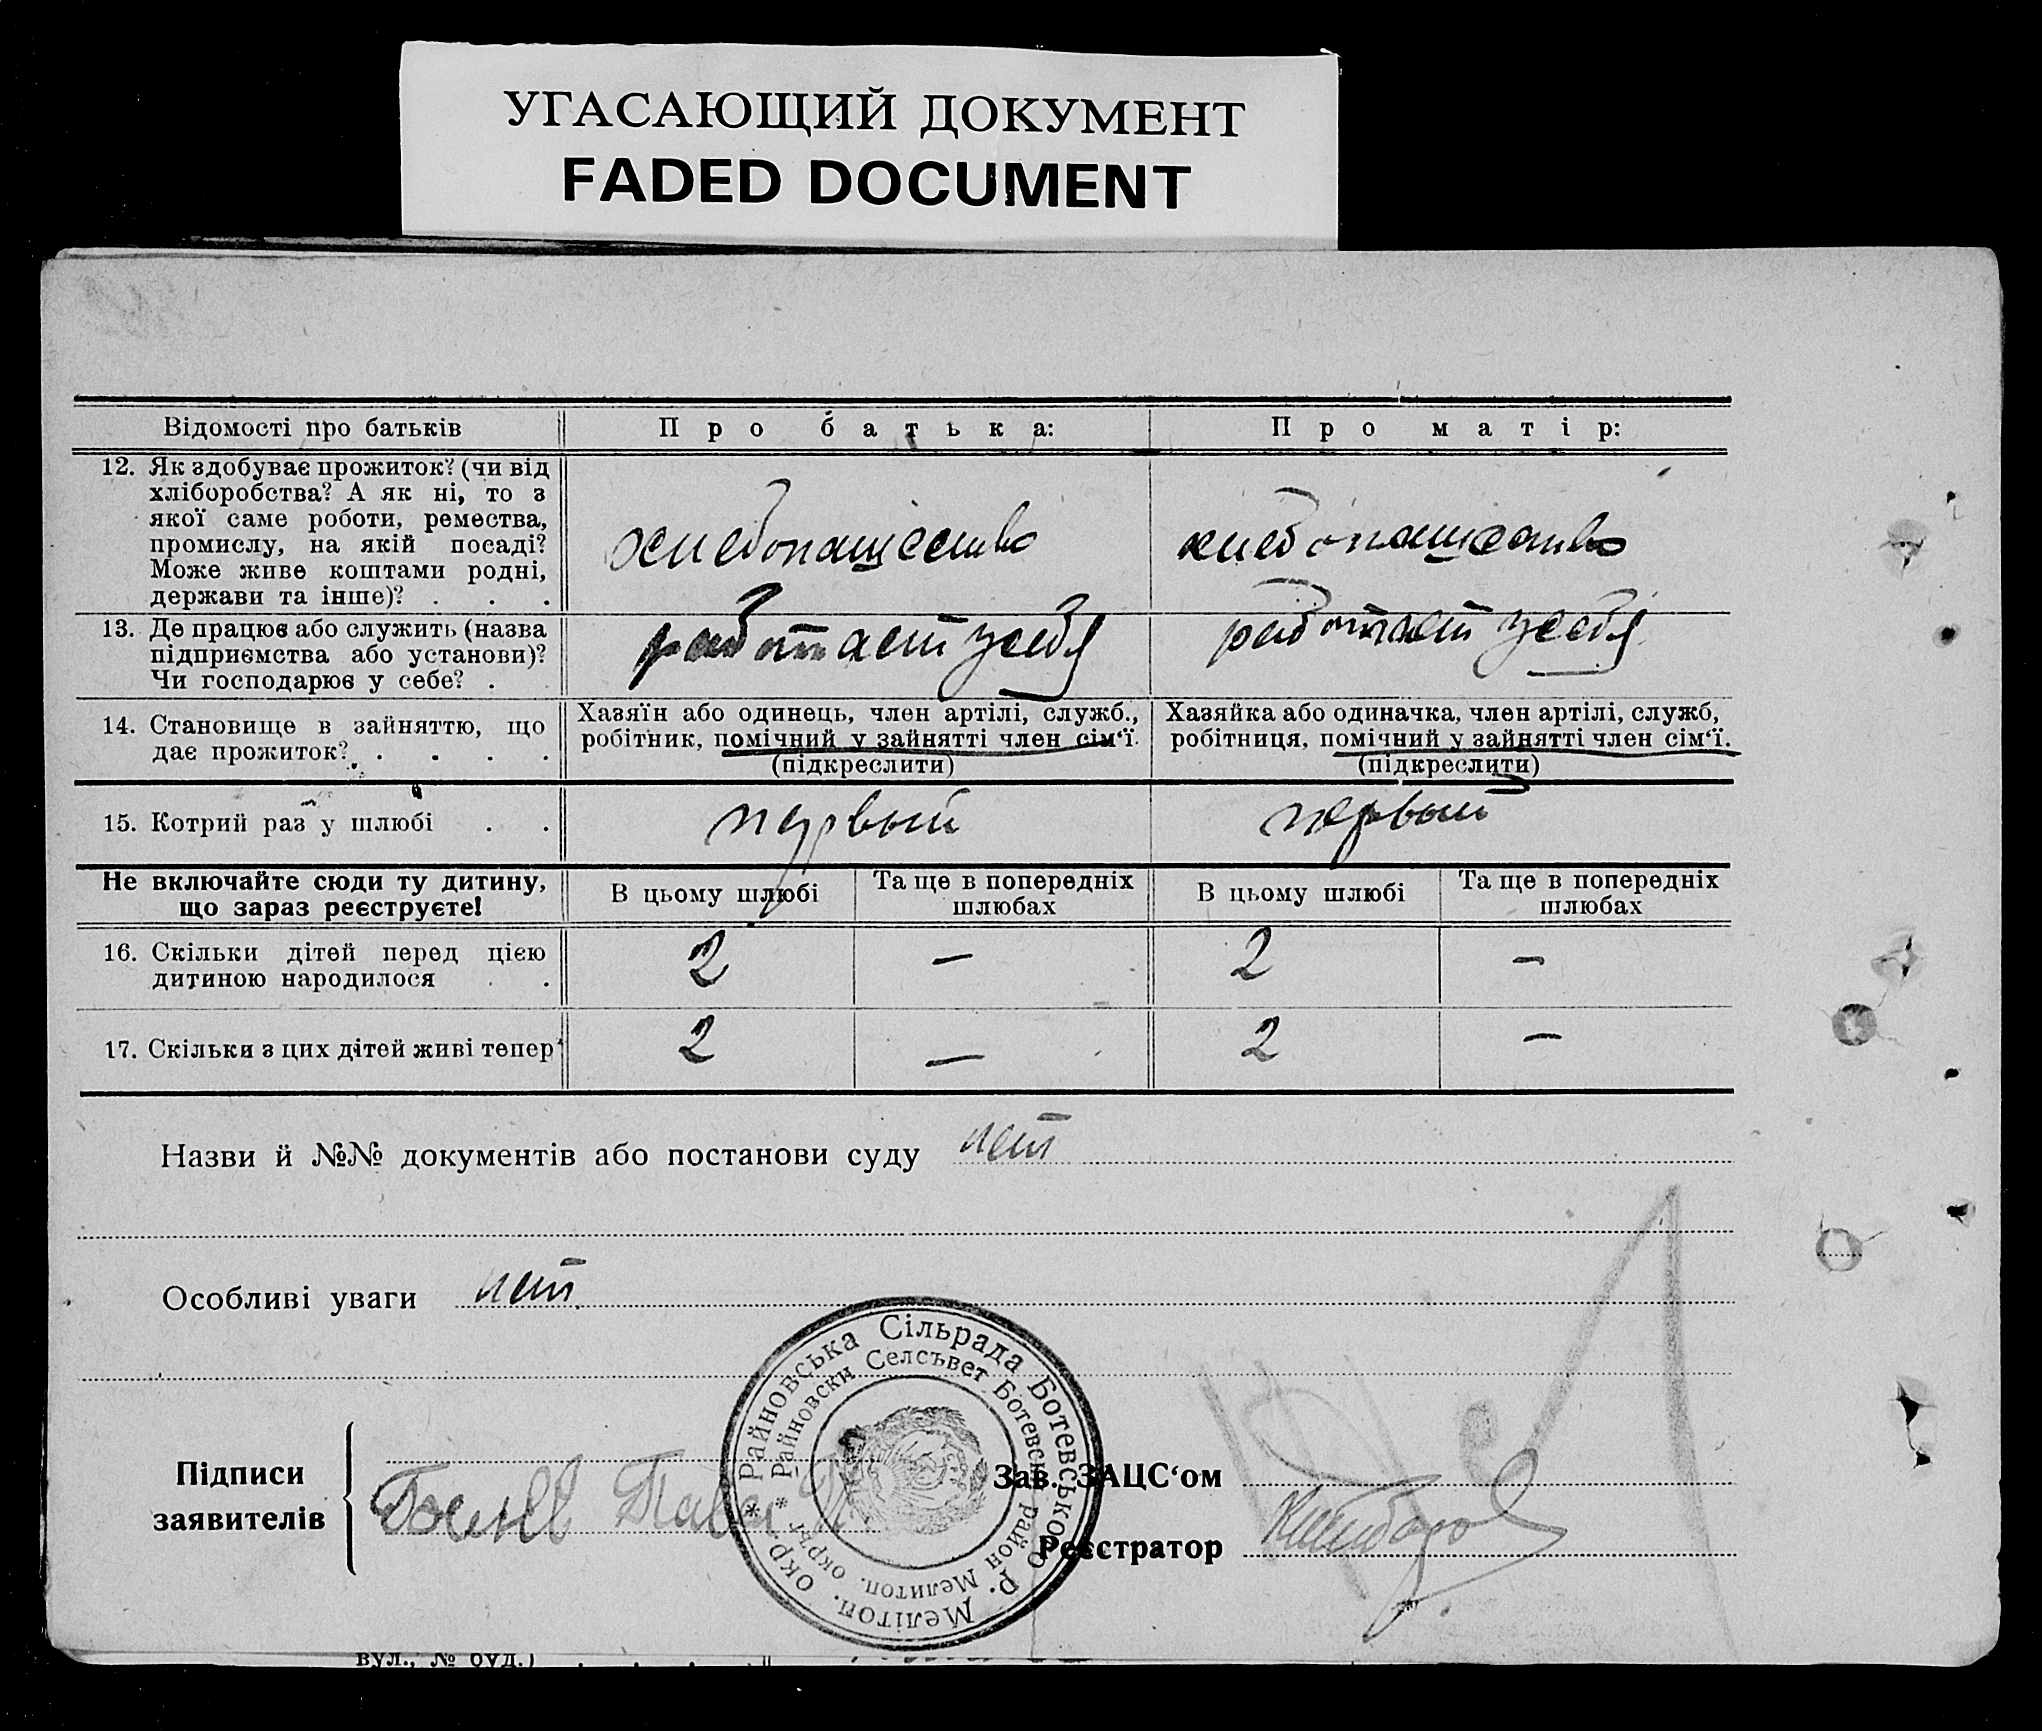 УГАСАЮЩИЙ ДОКУМЕНТ
FADED DOCUMENT
Відомості про батьків
Про батька:
Про матір:
12. Як здобуває прожиток? (чи від
хліборобства? А як ні, то з
якої саме роботи, ремества,
промислу, на якій посаді?
Може живе коштами родні,
держави та інше)? . . .
хлебопашество
хлебопашество
13. Де працює або служить (назва
підприємства або установи)?
Чи господарює у себе? .
работает у себя
работает у себя
14. Становище в зайняттю, що
дає прожиток? . . . .
Хазяїн або одинець, член артілі, служб.,
робітник, помічний у зайнятті член сім‘ї.
(підкреслити)
Хазяйка або одиначка, член артілі, служб,
робітниця, помічний у зайнятті член сім‘ї.
(підкреслити)
15. Котрий раз у шлюбі . .
первый
первый
Не включайте сюди ту дитину,
що зараз реєструєте!
В цьому шлюбі
Та ще в попередніх
шлюбах
В цьому шлюбі
Та ще в попередніх
шлюбах
16. Скільки дітей перед цією
дитиною народилося . .
2 — 2 —
17. Скільки з цих дітей живі тепер
2 — 2 —
Назви й №№ документів або постанови суду нет
Особливі уваги нет
Підписи
заявителів
Зав. ЗАЦС‘ом
Реєстратор
* Райновська Сільрада Ботевського р. Мелітоп. окр.
* Райновски Селсъвет Ботевски район Мелитоп. окръг
вул., № буд.)